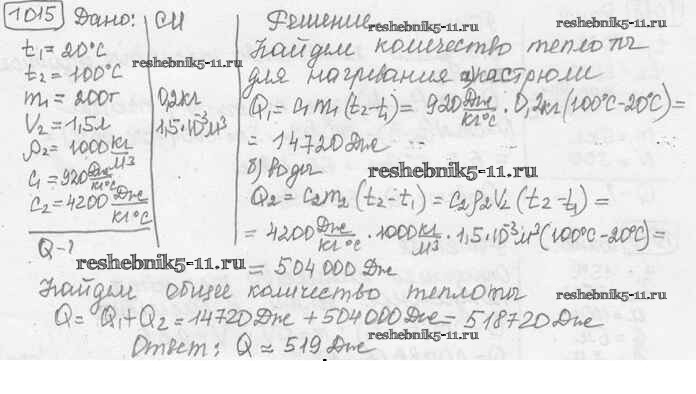 1015 Дано: СИ Решение
t₁ = 20°C
t₂ = 100°C
m₁ = 200г 0,2кг
V₂ = 1,5л 1,5·10⁻³м³
ρ₂ = 1000 кг/м³
c₁ = 920 Дж/кг°C
c₂ = 4200 Дж/кг°C
Q - ?
Найдем количество теплоты
для нагревания а) кастрюли
Q₁ = c₁ m₁ (t₂ - t₁) = 920 Дж/кг°C · 0,2кг (100°C - 20°C) =
= 14720 Дж
б) воды
Q₂ = c₂ m₂ (t₂ - t₁) = c₂ ρ₂ V₂ (t₂ - t₁) =
= 4200 Дж/кг°C · 1000 кг/м³ · 1,5·10⁻³ м³ (100°C - 20°C) =
= 504 000 Дж
Найдем общее количество теплоты
Q = Q₁ + Q₂ = 14720 Дж + 504 000 Дж = 518720 Дж
Ответ: Q ≈ 519 Дж
reshebnik5-11.ru
reshebnik5-11.ru
reshebnik5-11.ru
reshebnik5-11.ru
reshebnik5-11.ru
reshebnik5-11.ru
reshebnik5-11.ru
reshebnik5-11.ru
reshebnik5-11.ru